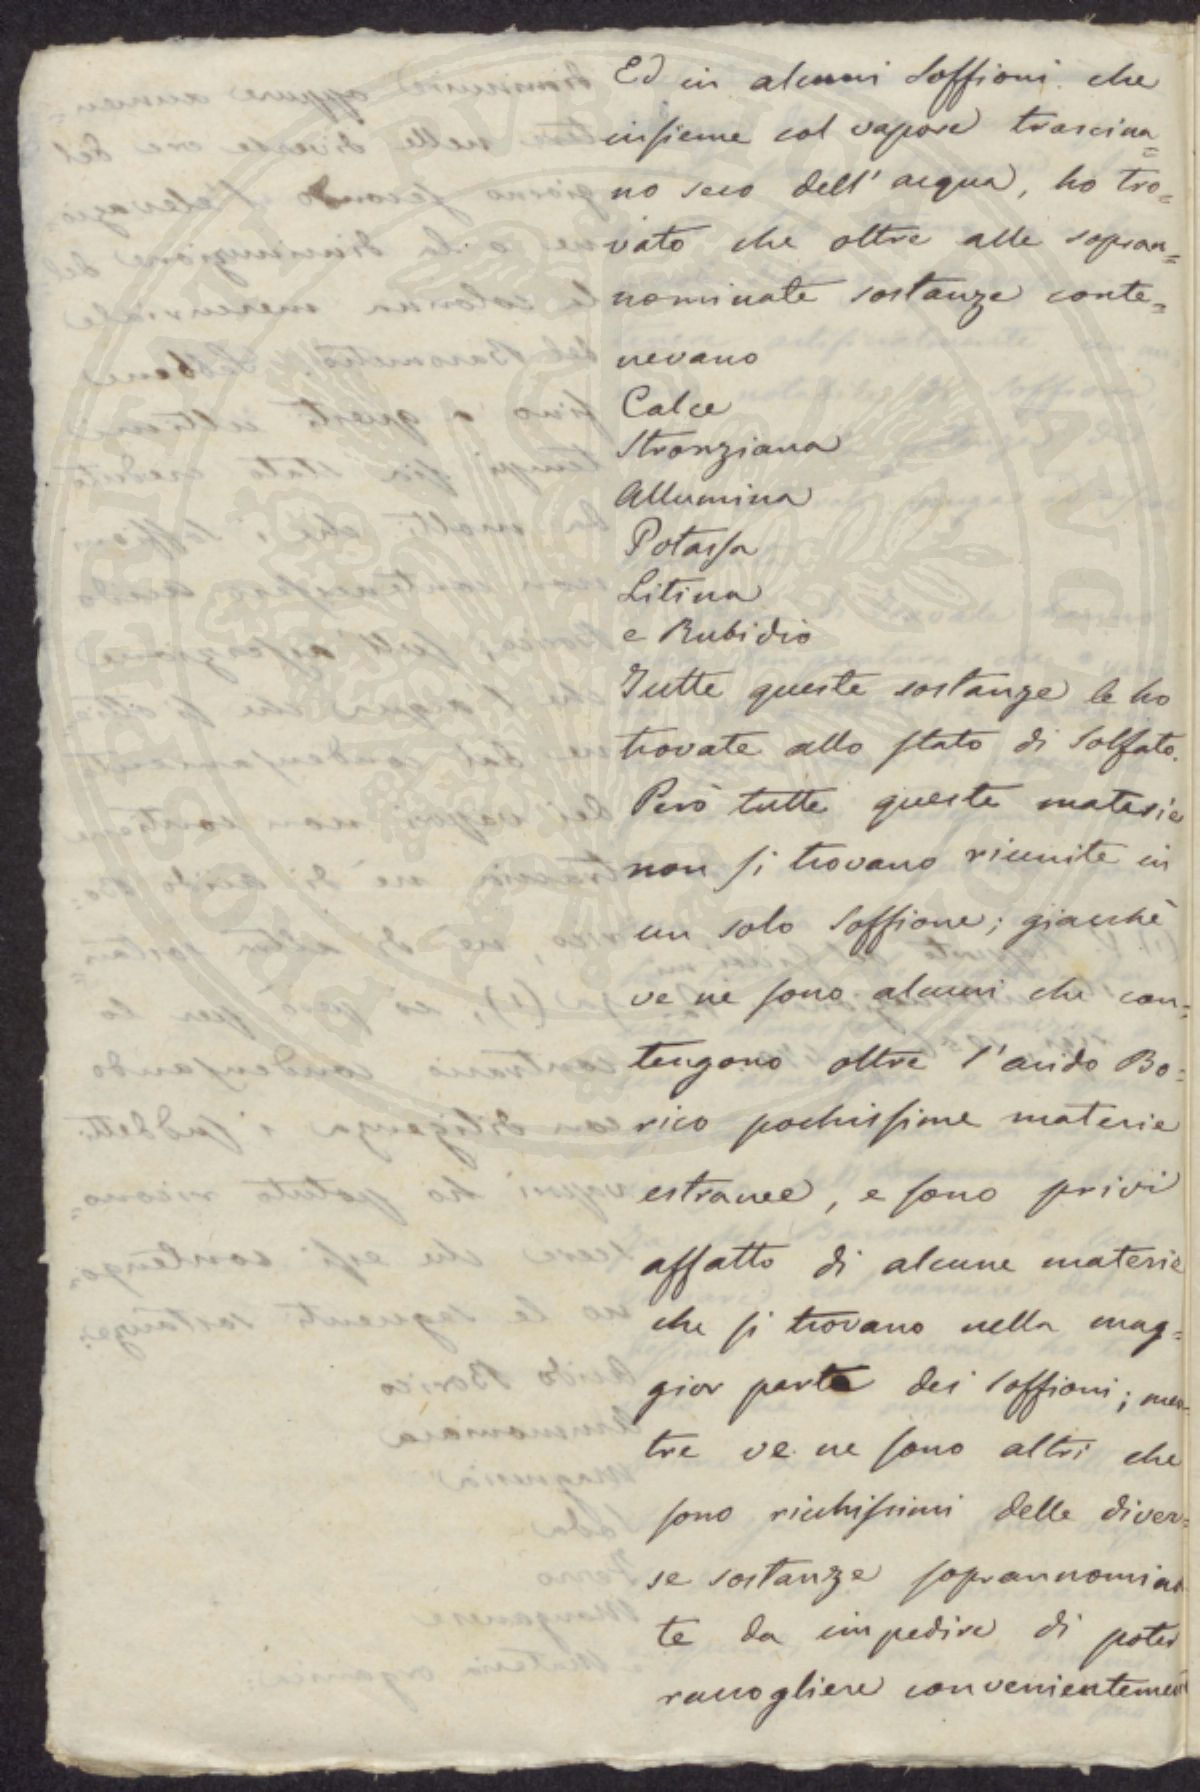 Ed in alcuni Soffioni che
insieme col vapore trascina=
no seco dell' acqua, ho tro=
vato che oltre alle sopran=
nominate sostanze conte=
nevano
Calce
Stronziana
Allumina
Potassa
Litina
e Rubidio
Tutte queste sostanze le ho
trovate allo stato di Solfato.
Però tutte queste materie
non si trovano riunite in
un solo Soffione; giacchè
ve ne sono alcuni che con=
tengono oltre l'acido Bo=
rico pochissime materie
estranee, e sono privi
affatto di alcune materie
che si trovano nella mag=
gior parte dei Soffioni; men=
tre ve ne sono altri che
sono ricchissimi delle diver=
se sostanze soprannomina
te da impedire di poter
raccogliere convenientemen